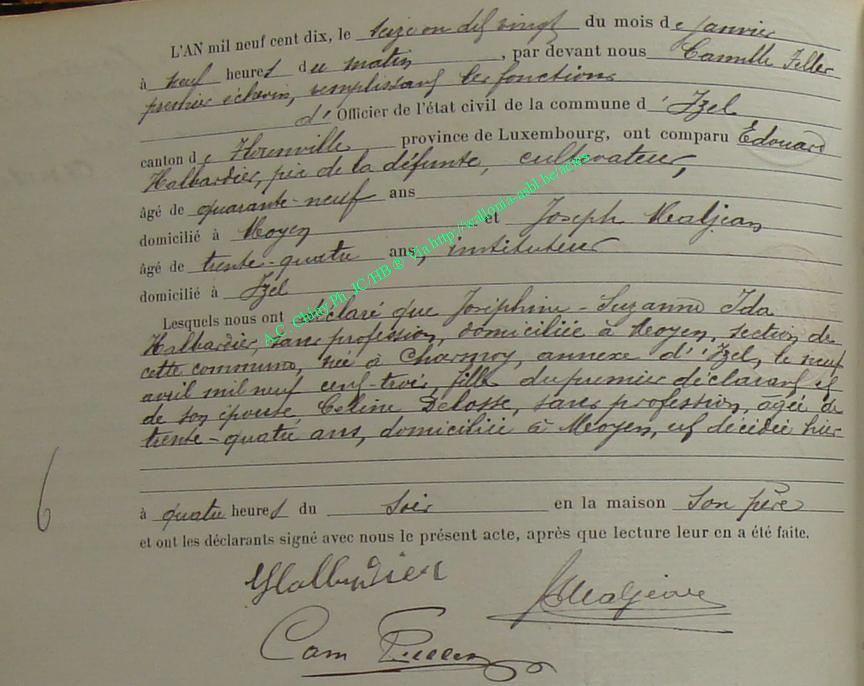 L'AN mil neuf cent dix, le vingt du mois de janvier
à neuf heures du matin, par devant nous Camille Feller
premier échevin, remplissant les fonctions
d' Officier de l'état civil de la commune d'Izel
canton de Florenville province de Luxembourg, ont comparu Édouard
Halbardier, père de la défunte, cultivateur,
âgé de quarante-neuf ans
domicilié à Moyen et Joseph Maljean
âgé de trente-quatre ans, instituteur
domicilié à Izel
Lesquels nous ont déclaré que Joséphine-Suzanne Ida
Halbardier, sans profession, domiciliée à Moyen, section de
cette commune, née à Charmoy, annexe d'Izel, le neuf
avril mil neuf cent-trois, fille du premier déclarant et
de son épouse Céline Delosse, sans profession, âgée de
trente-quatre ans, domiciliée à Moyen, est décédée hier
à quatre heures du soir en la maison son père
et ont les déclarants signé avec nous le présent acte, après que lecture leur en a été faite.
Halbardier
JMaljean
Cam Feller
6
A.C. Chiny Ph. JC/HB ® Via http://wallonia-asbl.be/actes